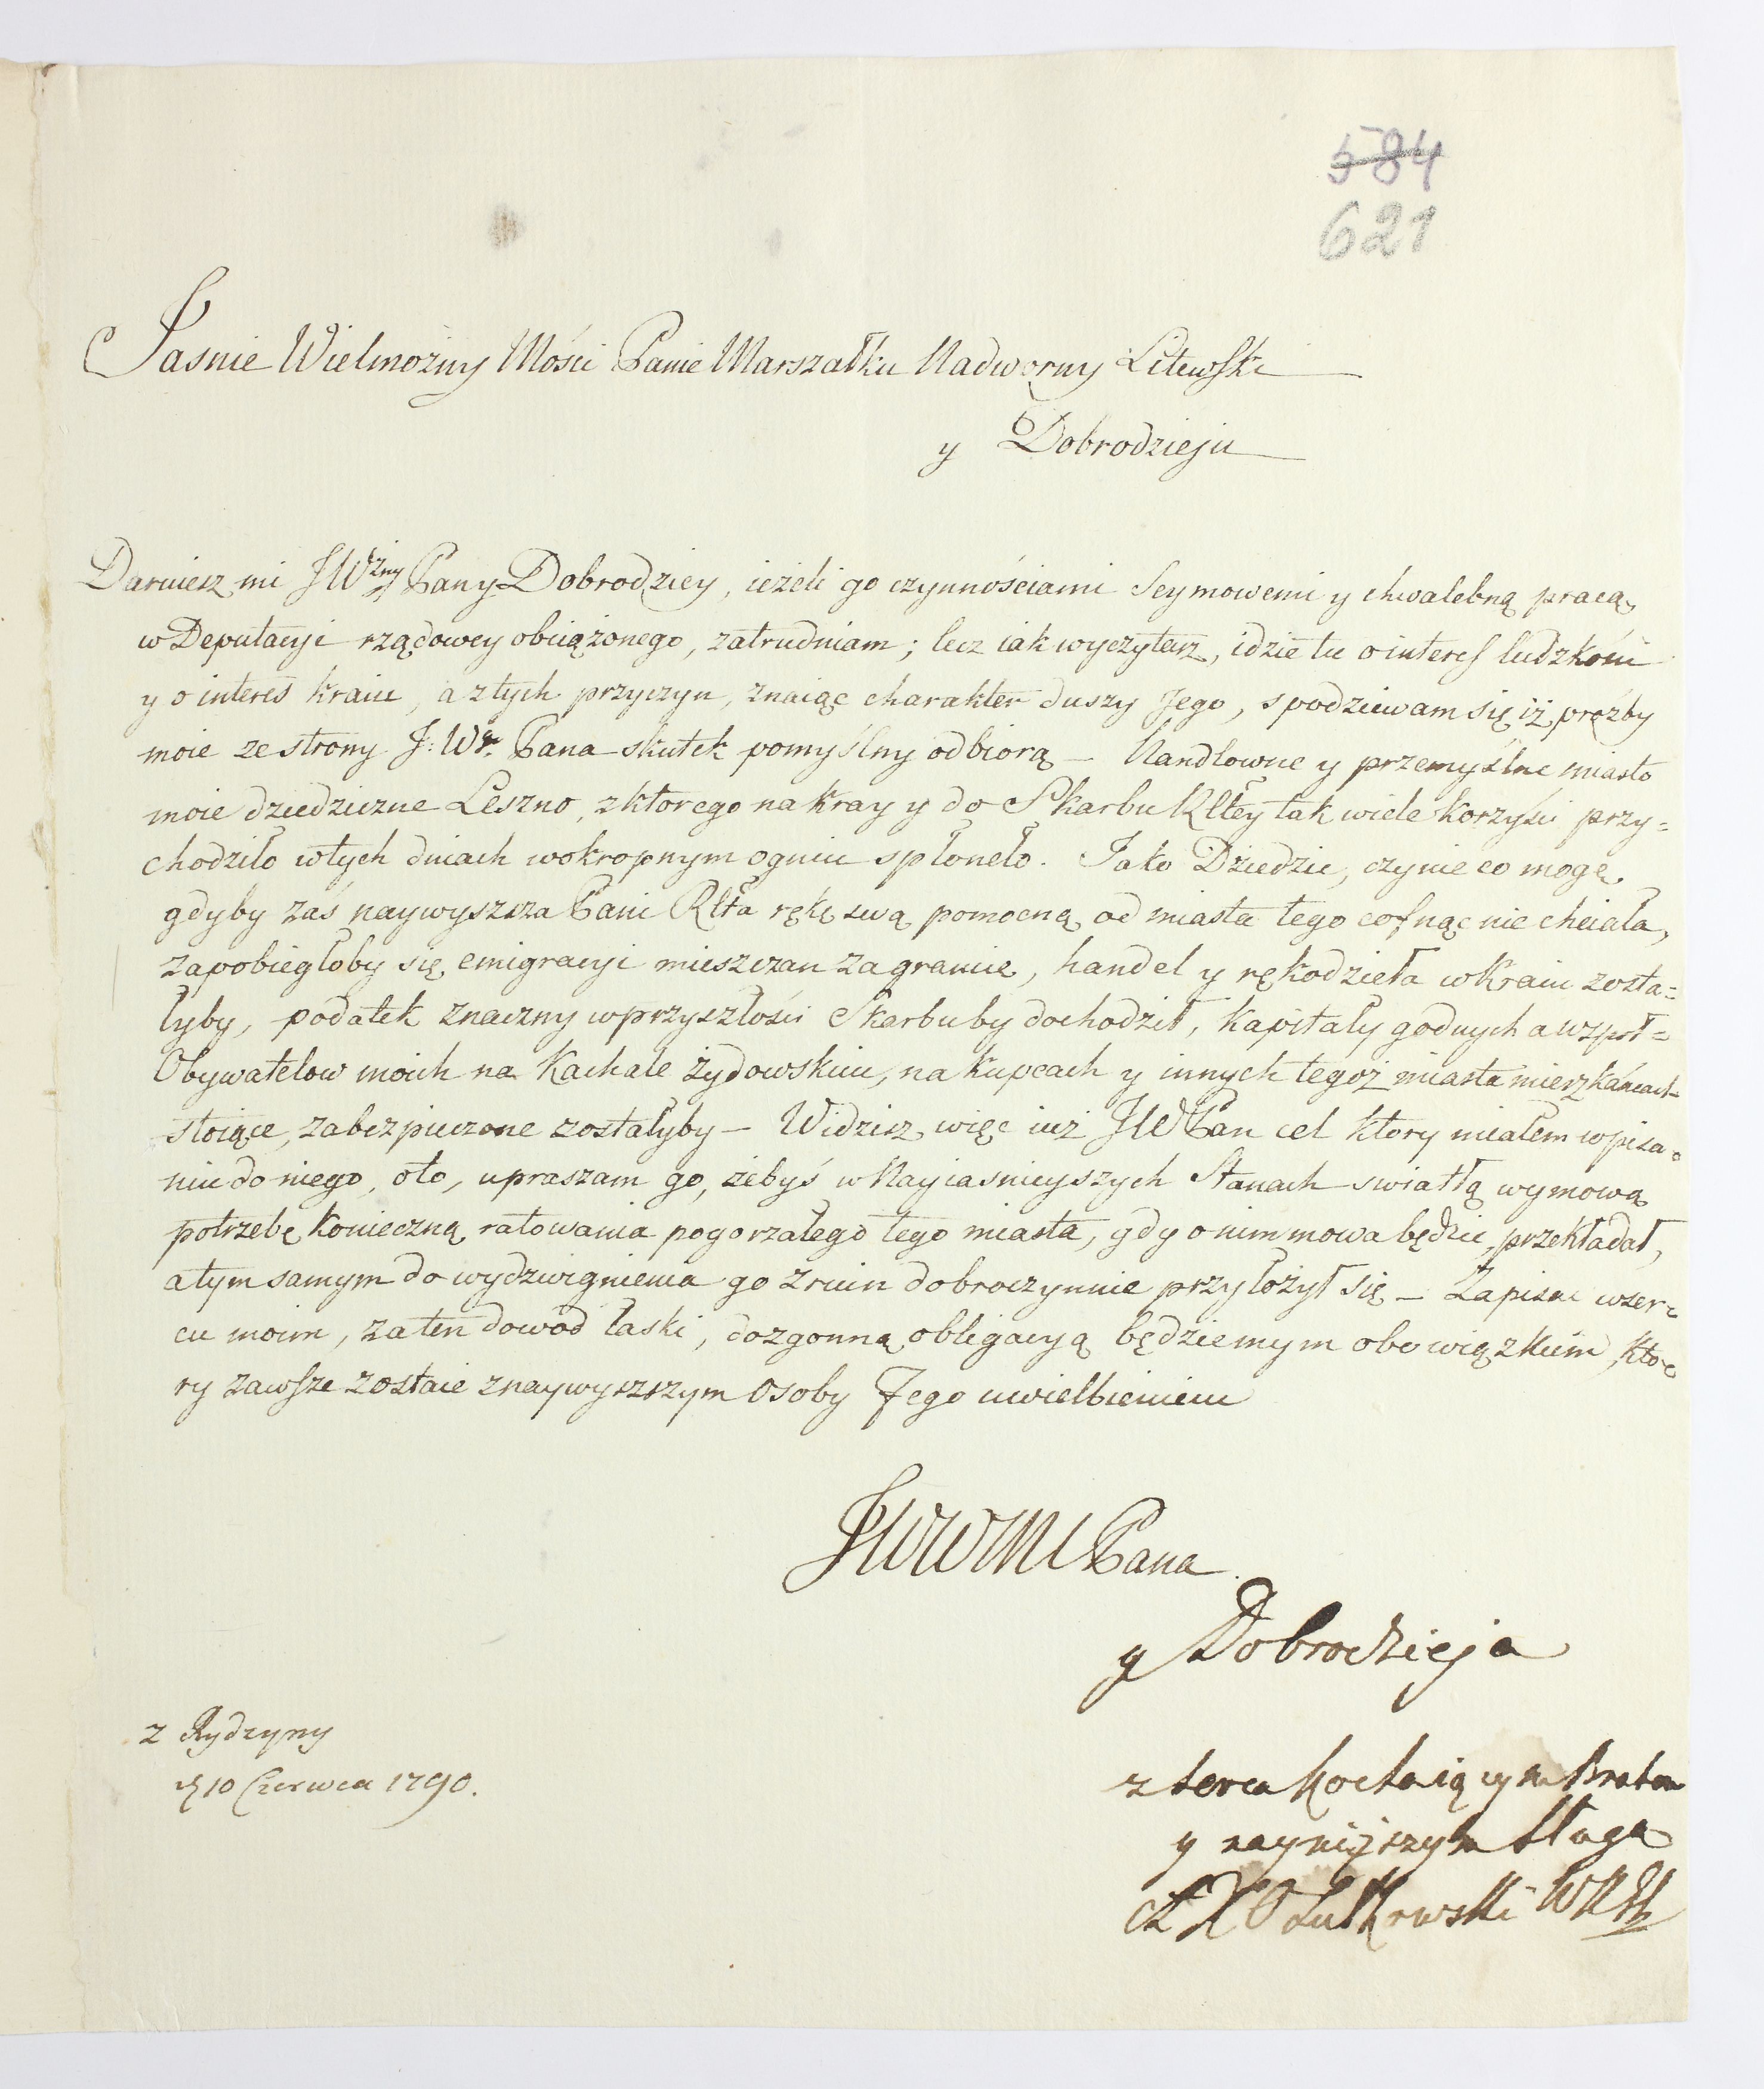 584
621
Jasnie Wielmożny Mości Panie Marszałku Nadworny Litewski
y Dobrodzieju
Daruiesz mi JWżny Pany Dobrodziey, ieżeli go czynnościami Seymowemi y chwalebną pracą
w Deputacyi rządowey obciążonego, zatrudniam; lecz iak wyczytasz, idzie tu o interes ludzkości
y o interes kraiu, a z tych przyczyn, znaiąc charakter duszy Jego, spodziewam się iż proźby
moie ze strony J: W. Pana skutek pomyślny odbiorą – Handlowne y przemyślne miasto
moie dziedziczne Leszno, z ktorego na kray y do Skarbu Rltey tak wiele korzyści przy=
chodziło w tych dniach w okropnym ogniu spłoneło. Jako Dziedzic, czynie co mogę,
gdyby zaś naywyszsza Pani Rlta rękę swą pomocną od miasta tego cofnąc nie chciała,
zapobiegłoby się emigracyi mieszczan za granicę, handel y rękodzieła w Kraiu zosta=
łyby, podatek znaczny w przyszłości Skarbu by dochodził, kapitały godnych a wspoł=
Obywatelow moich na Kachale żydowskim, na kupcach y innych tegoż miasta mieszkańcach
stoiące, zabezpieczone zostałyby – Widzisz więc iuż JW Pan cel ktory miałem w pisa=
niu do niego, oto, upraszam go, żebyś w Nayiasnieyszych Stanach swiatłą wymową
potrzebę konieczną ratowania pogorzałego tego miasta, gdy o nim mowa będzie, przekładał,
a tym samym do wydzwignienia go z ruin dobroczynnie przyłożył się – Zapisze w ser=
cu moim, za ten dowod łaski, dozgonną obligacyą będzie mym obowiązkiem, kto=
ry zawsze zostaie z naywyszszym Osoby Jego uwielbieniem
JWWM Pana
y Dobrodzieja
z Rydzyny
d 10 Czerwca 1790.
z serca kochaiącym Bratem
y naynijszym sługą
A X Sułkowski WK